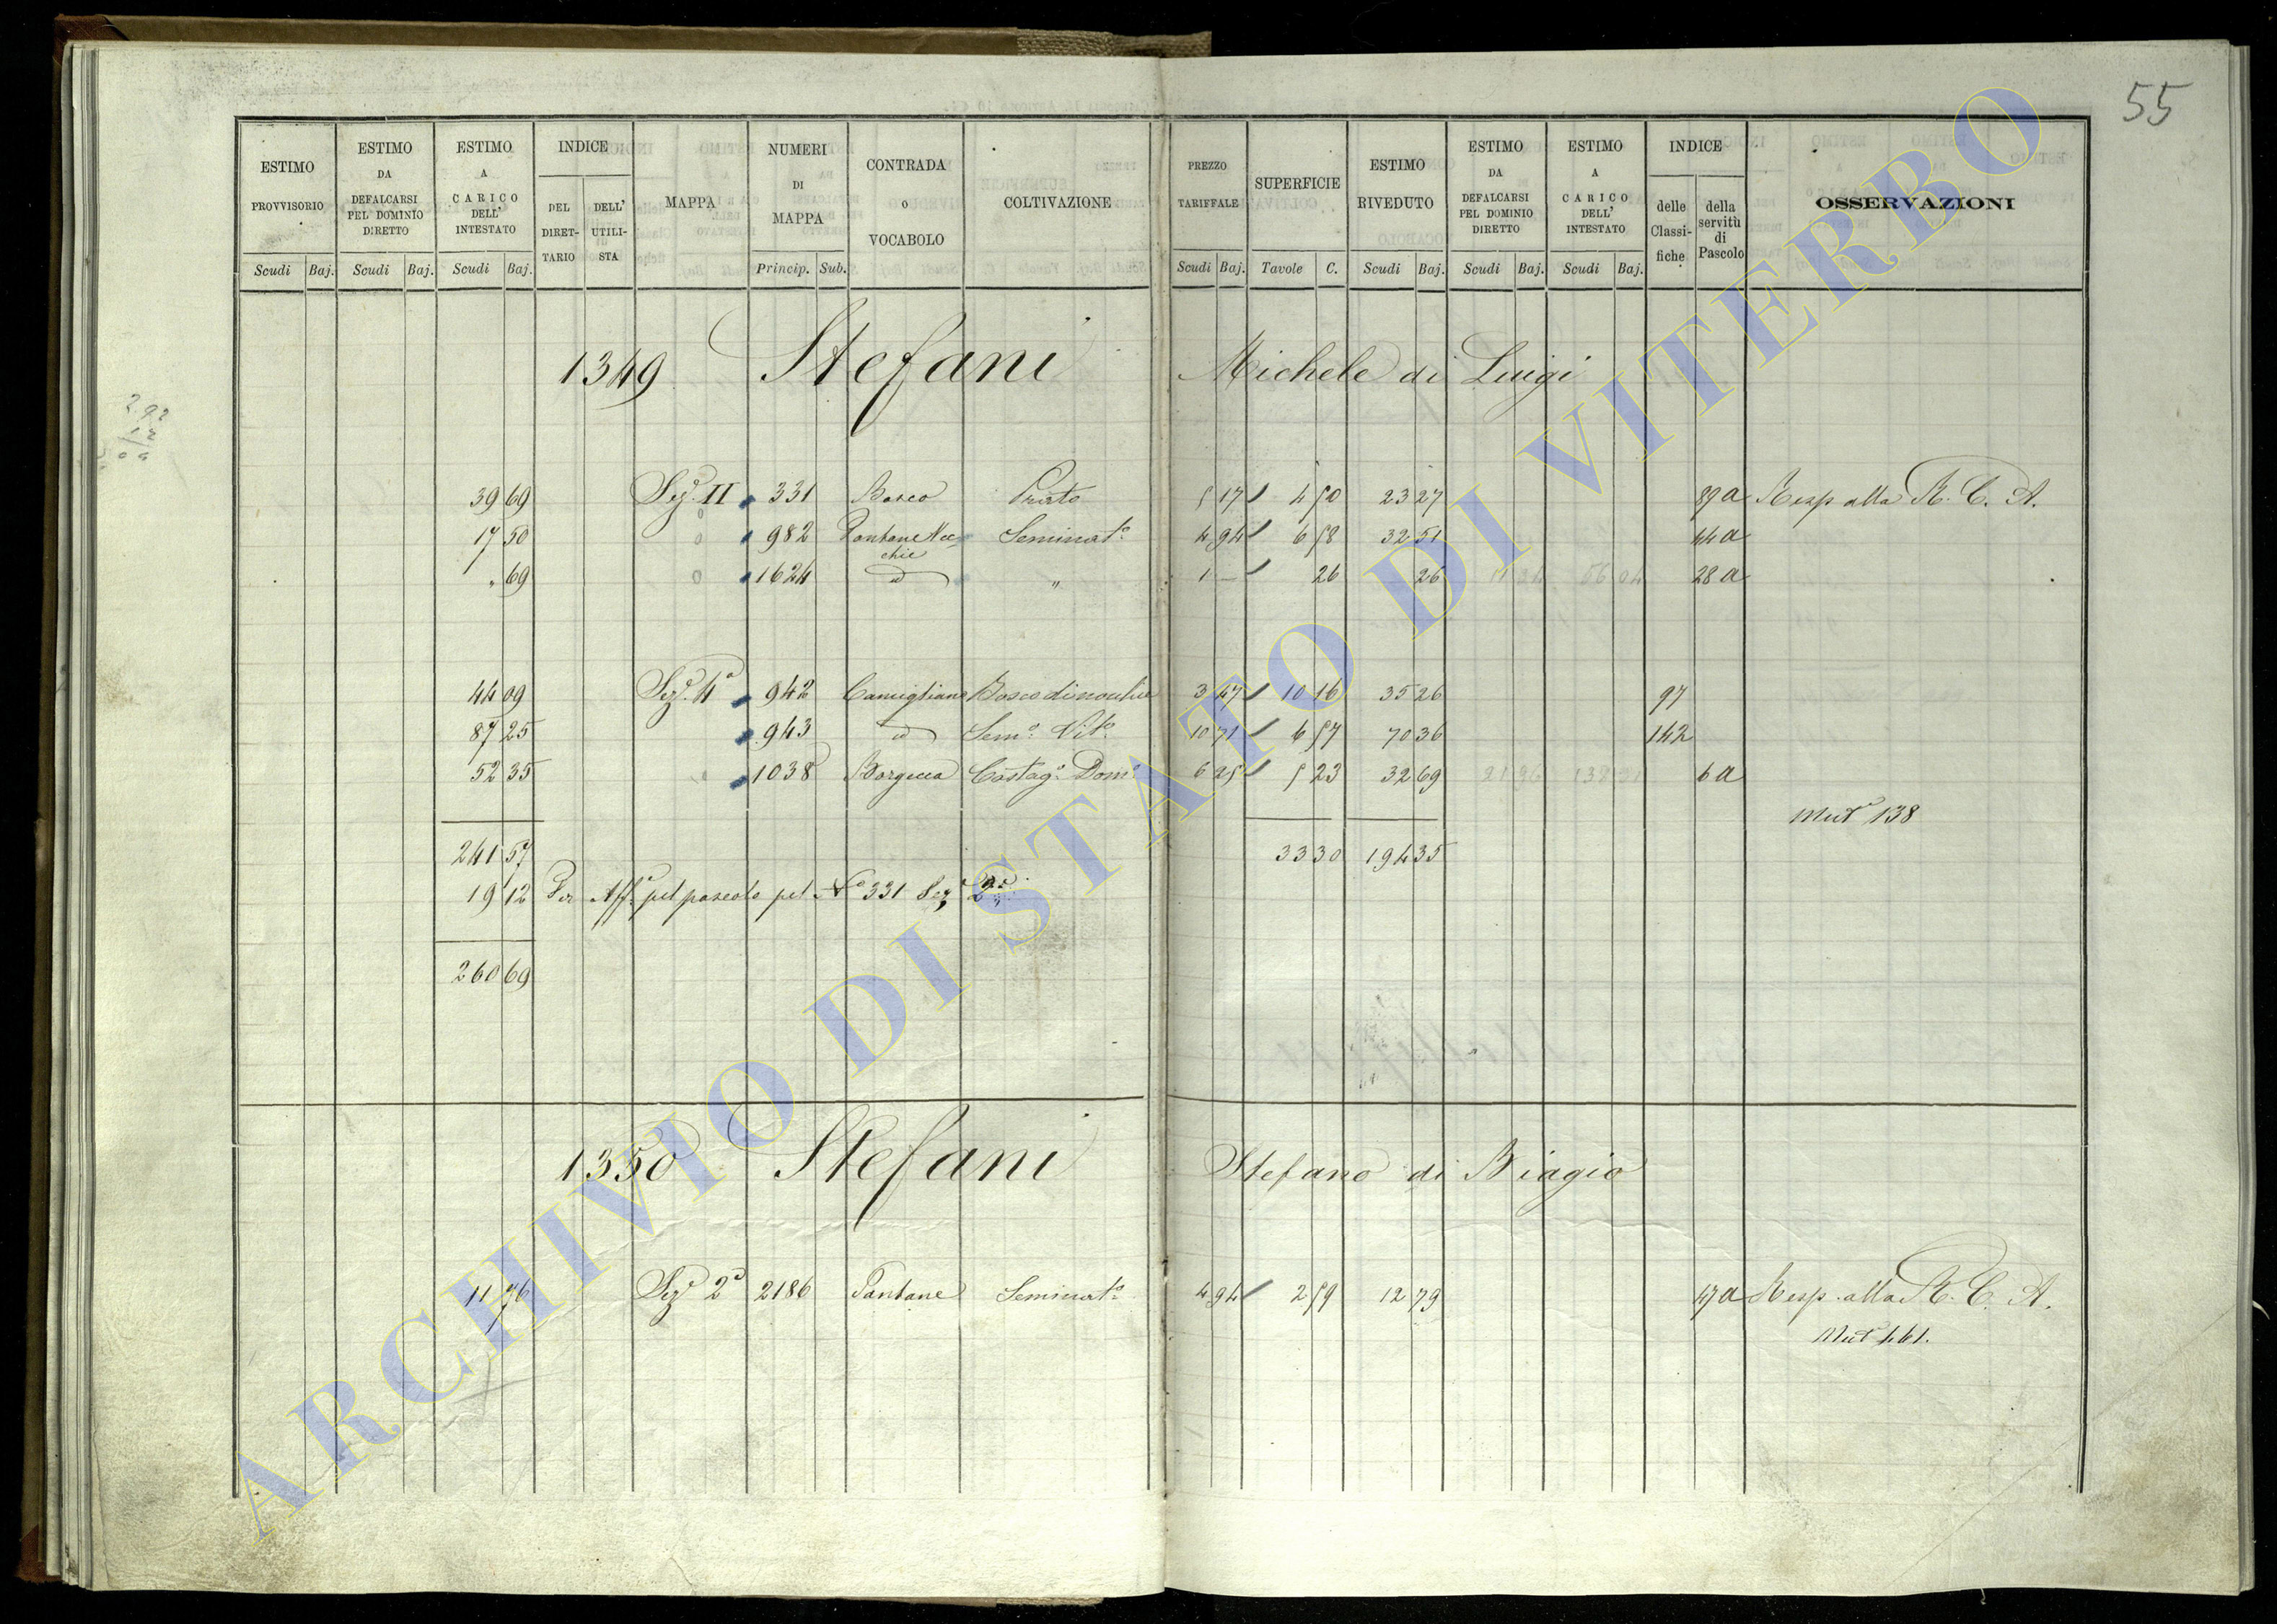 55
ESTIMO PROVVISORIO
ESTIMO DA DEFALCARSI PEL DOMINIO DIRETTO
ESTIMO A CARICO DELL' INTESTATO
INDICE
DEL DIRET-TARIO
DELL' UTILI-STA
MAPPA
NUMERI DI MAPPA
CONTRADA O VOCABOLO
COLTIVAZIONE
PREZZO TARIFFALE
SUPERFICIE
ESTIMO RIVEDUTO
ESTIMO DA DEFALCARSI PEL DOMINIO DIRETTO
ESTIMO A CARICO DELL' INTESTATO
INDICE
delle Classi-fiche
della servitù di Pascolo
OSSERVAZIONI
Scudi Baj. Scudi Baj. Scudi Baj. Princip. Sub. Scudi Baj. Tavole C. Scudi Baj. Scudi Baj. Scudi Baj.
1349 Stefani Michele di Luigi
39 69 Seze. II 331 Bosco Prato 5 17 4 50 23 27 89 a Resp alla R. C. A.
17 50 982 Pantane Vec-chie Seminato. 4 94 6 58 32 51 44 a
" 69 1624 d " 1 — 26 26 28 a
44 09 Seze. 4a 942 Camigliano 3 47 10 16 35 26 97
87 25 943 d Semo. Vito. 10 71 6 57 70 36 142
52 35 1038 Castago. Domo. 6 25 5 23 32 69 6 a
Mute 138
241 57 33 30 194 35
19 12 Per Affe. pel pascolo pel No 331 Sez. 2a
260 69
1350 Stefani Stefano di Biagio
11 76 Seze 2a 2186 Pantane Seminato. 4 94 2 59 12 79 47 a Resp. alla R. C. A.
Mute 461.
ARCHIVIO DI STATO DI VITERBO